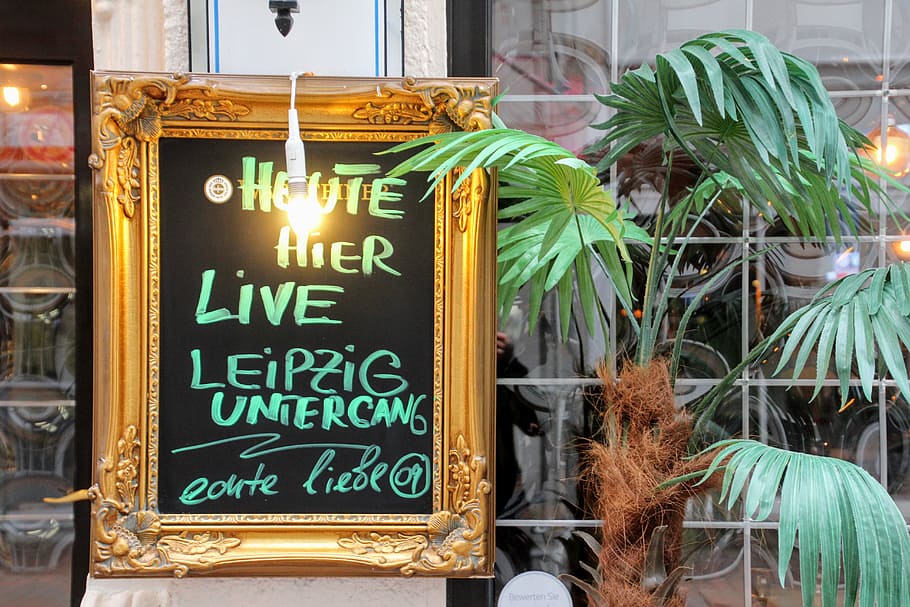 HEUTE
HiER
LiVE
LEiPZiG
UNTERGANG
echte liebe 09
Bewerten Sie